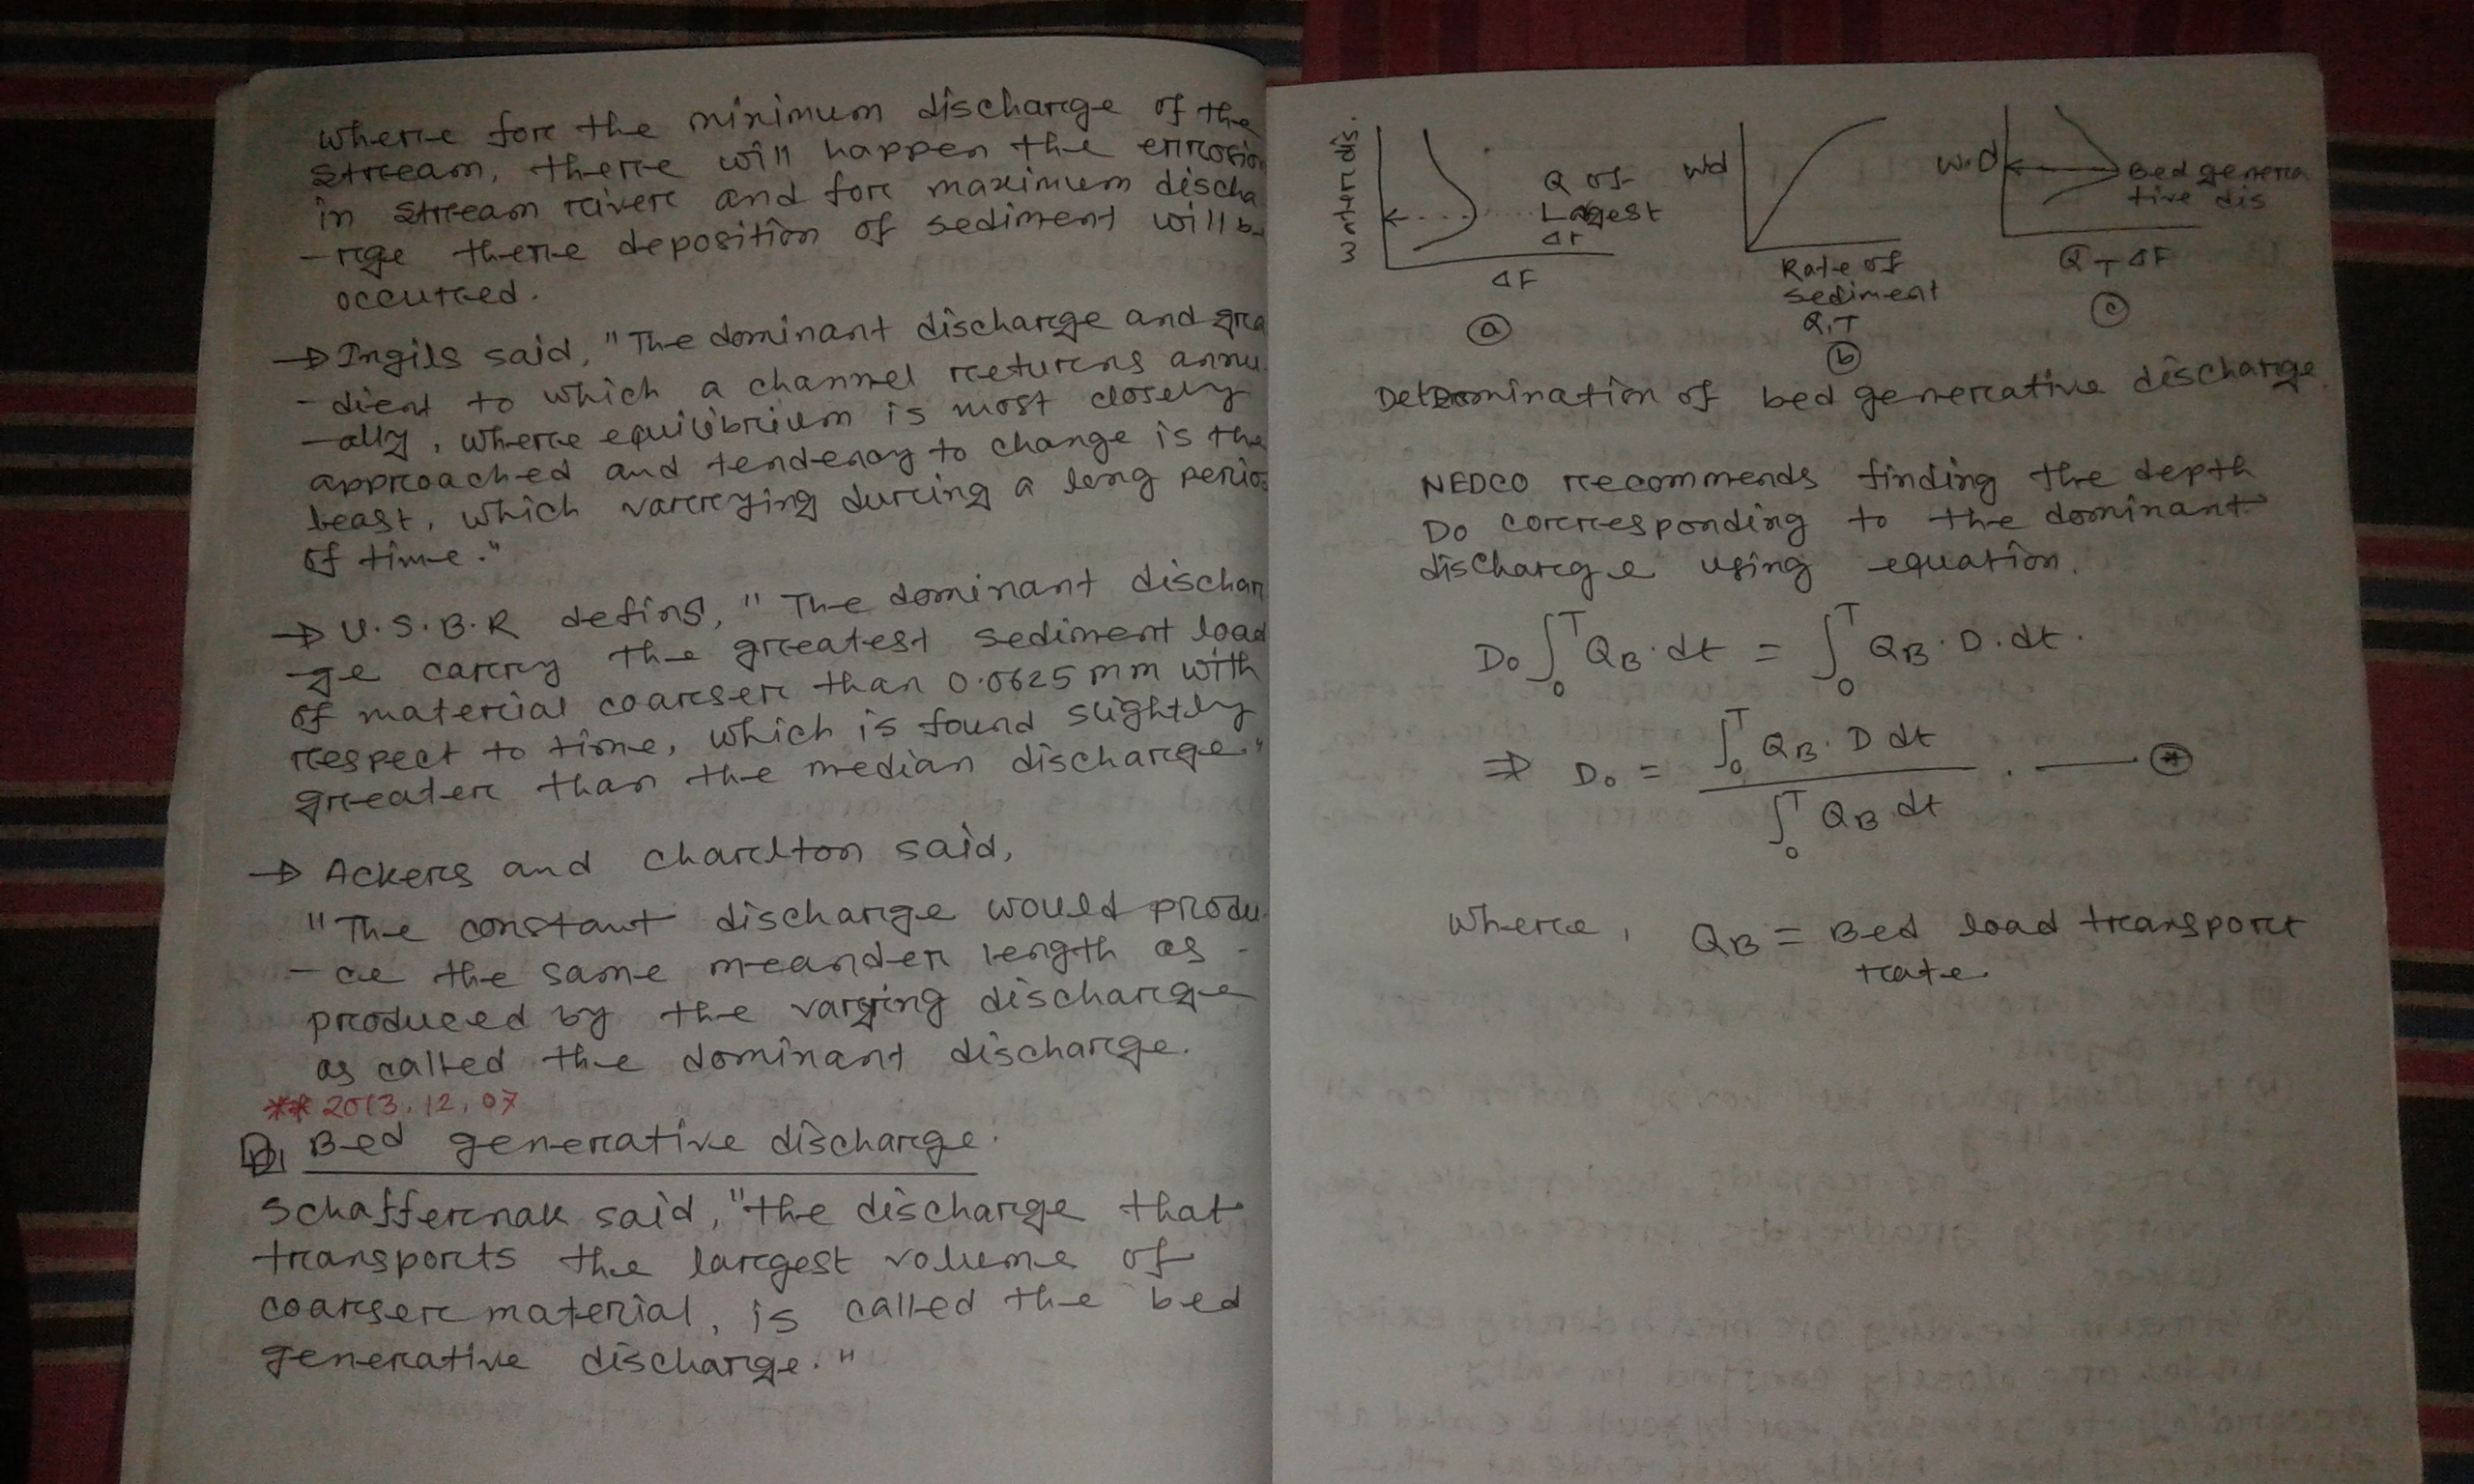 where for the minimum discharge of the
stream, there will happen the errosion
in stream river and for maximum discha
-rge there deposition of sediment will be
occurred.
→ Ingils said, "The dominant discharge and gra
-dient to which a channel returns annu
-ally, where equilibrium is most closely
approached and tendency to change is the
least, which varrying during a long perio
of time."
→ U.S.B.R defins, "The dominant dischar
-ge carry the greatest sediment load
of material coarser than 0.0625 mm with
respect to time, which is found slightly
greater than the median discharge."
→ Ackers and charlton said,
"The constant discharge would produ
-ce the same meander length as -
produced by the varying discharge
as called the dominant discharge.
** 2013.12.07
Bed generative discharge.
Schaffernak said, "the discharge that
transports the largest volume of
coarser material, is called the bed
generative discharge."
water dis.
Q of
Lagest
ΔF
ΔF
(a)
wd
Rate of
sediment
Q,T
(b)
w.d
Bed genera
tive dis
Q T ΔF
(c)
Determination of bed generative discharge
NEDCO recommends finding the depth
Do corresponding to the dominant
discharge using equation.
D₀ ∫₀ᵀ Q_B . dt = ∫₀ᵀ Q_B . D . dt .
⇒ D₀ = ∫₀ᵀ Q_B . D dt / ∫₀ᵀ Q_B dt . —— (*)
where, Q_B = Bed load transport
rate.